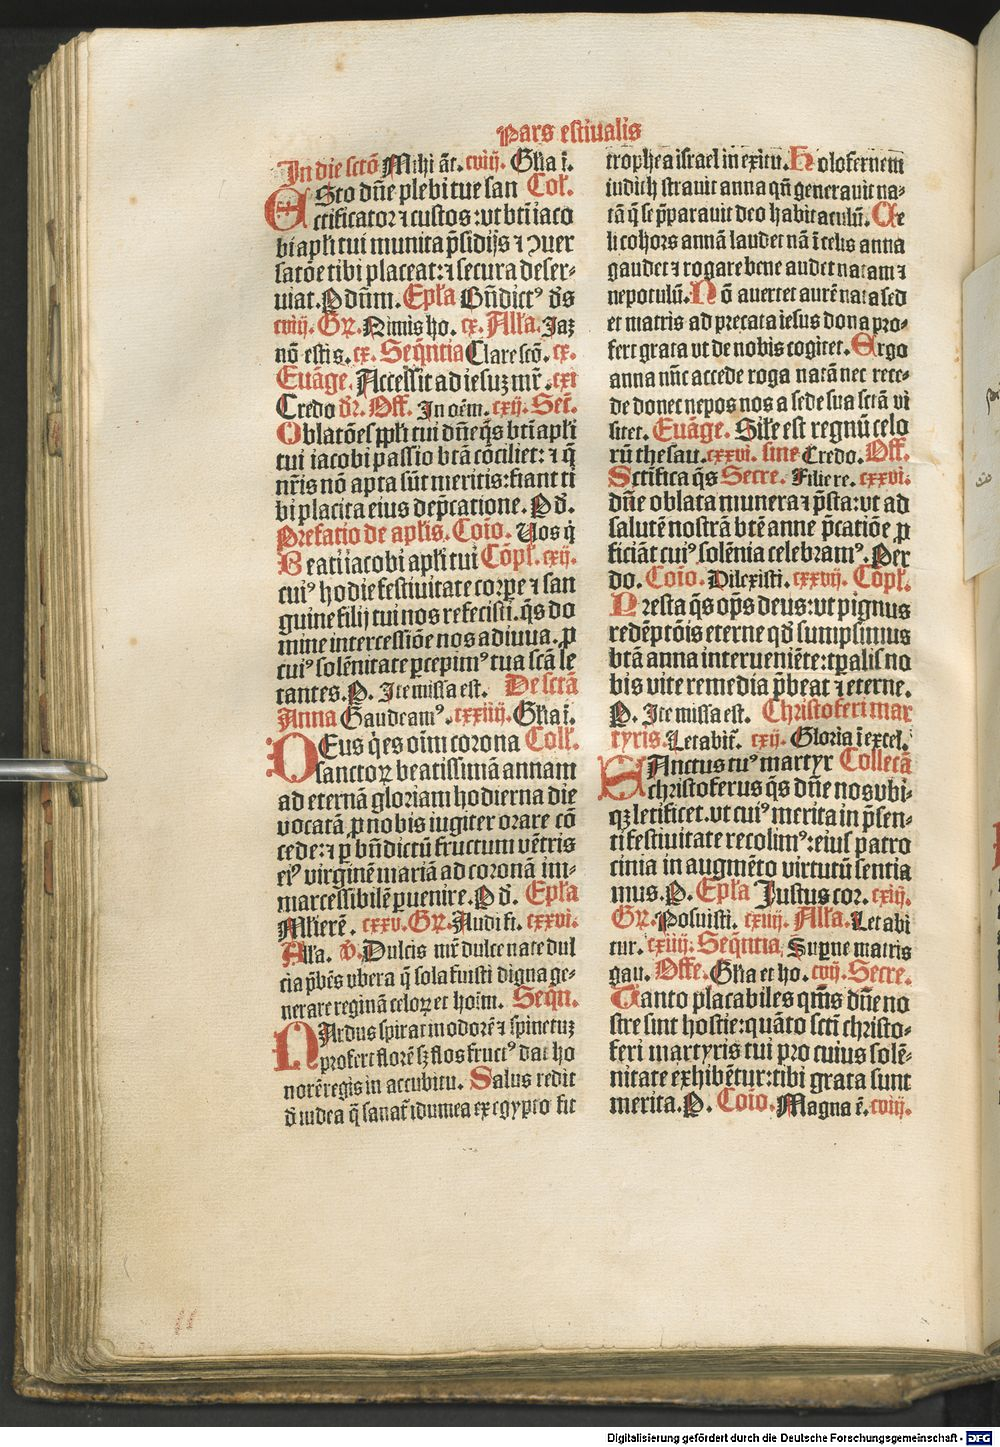 Pars estiualis
In die sctõ Mihi ãt. cviij. Glia ĩ.
ESto dñe plebi tue san Coł.
ctificator ⁊ custos : vt bti iaco
bi apłi tui munita p̃sidijs ⁊ ꝯuer
satõe tibi placeat: ⁊ secura deser-
uiat. P dũm. Epła Bñdictꝰ ds̃
cviij. Gꝛ. Nimis ho. cx. Ałła. Iaꝫ
nõ estis. cx. Seq̃ntia Clare sctõ. cx.
Euãge. Accessit ad iesuꝫ mr̃. cxi
Credo dr̃. Off. In oẽm. cxij. Secr̃.
Oblatões ppłi tui dñe q̃s bti apłi
tui iacobi passio btã cõciliet: ⁊ q̃
nr̃is nõ apta sũt meritis: fiant ti
bi placita eius dep̃catione. P d̃.
Prefatio de apłis. Coĩo. Uos q̇
Beati iacobi apłi tui Cõpł. cxij.
cuiꝰ hodie festiuitate corpe ⁊ san
guine filij tui nos refecisti. q̃s do
mine intercessiõe nos adiuua. ꝑ
cuiꝰ solẽnitate ꝑcepimꝰ tua scã le
tantes. P. Ite missa est. De sctã
Anna Gaudeamꝰ. cxxiiij. Glia ĩ.
DEus q̇ es oĩm corona Coll̃.
sanctoꝝ beatissimã annam
ad eternã gloriam hodierna die
vocatã ꝓ nobis iugiter orare cõ
cede: ⁊ ꝑ bñdictũ fructum vẽtris
eiꝰ virginẽ mariã ad coronã im-
marcessibilẽ ꝑuenire. P d̃. Epła
Mlierẽ. cxxv. Gꝛ. Audi fi. cxxvi.
Ałła. v̾. Dulcis mr̃ dulce nate dul
cia p̃bẽs vbera q̃ sola fuisti digna ge-
nerare reginã celoꝝ et hoĩm. Seqñ.
NArdus spirat in odorẽ ⁊ spinetuꝫ
profert florẽ sꝫ flos fructꝰ dat ho
norẽ regis in accubitu. Salus redit
d̃ iudea q̃ sanat̃ idumea ex egypto fit
trophea israel in exitu. Holofernem
iudich strauit anna qñ generauit na-
tã q̃ se p̃parauit deo habitaculũ. Ce
li cohors annã laudet nã ĩ celis anna
gaudet ⁊ rogare bene audet natam ⁊
nepotulũ. Nõ auertet aurẽ nata sed
et matris ad precata iesus dona pro-
fert grata vt de nobis cogitet. Ergo
anna nũc accede roga natã nec rece-
de donec nepos nos a sede sua sctã vi
sitet. Euãge. Sile est regnũ celo
rũ thesau. cxxvi. sine Credo. Off.
Sctifica q̃s Secre. Filie re. cxxvi.
dñe oblata munera ⁊ p̃sta: vt ad
salutẽ nostrã btẽ anne p̃catiõe ꝓ
ficiãt cuiꝰ solẽnia celebramꝰ. Per
do. Coĩo. Dilexisti. cxxvij. Cõpł.
Presta q̃s op̃s deus: vt pignus
redẽptõis eterne qd̃ sumpsimus
btã anna interueniẽte: tp̃alis no
bis vite remedia p̃beat ⁊ eterne.
P. Ite missa est. Christoferi mar
tyris. Letabit̃. cxij. Gloria ĩ excel.
SAnctus tuꝰ martyr Collecã
christoferus q̃s dñe nos vbi-
qꝫ letificet. vt cuiꝰ merita in p̃sen-
ti festiuitate recolimꝰ: eius patro
cinia in augmẽto virtutũ sentia
mus. P. Epła Justus cor. cxiij.
Gꝛ. Posuisti. cxvij. Ałła. Letabi
tur. cxiiij. Seq̃ntia, Supne matris
gau. Offe. Glia et ho. cvij. Secre.
Tanto placabiles q̃ms dñe no
stre sint hostie: quãto scti christo-
feri martyris tui pro cuius solẽ-
nitate exhibẽtur: tibi grata sunt
merita. P. Coĩo. Magna ẽ. cviij.
Digitalisierung gefördert durch die Deutsche Forschungsgemeinschaft - DFG